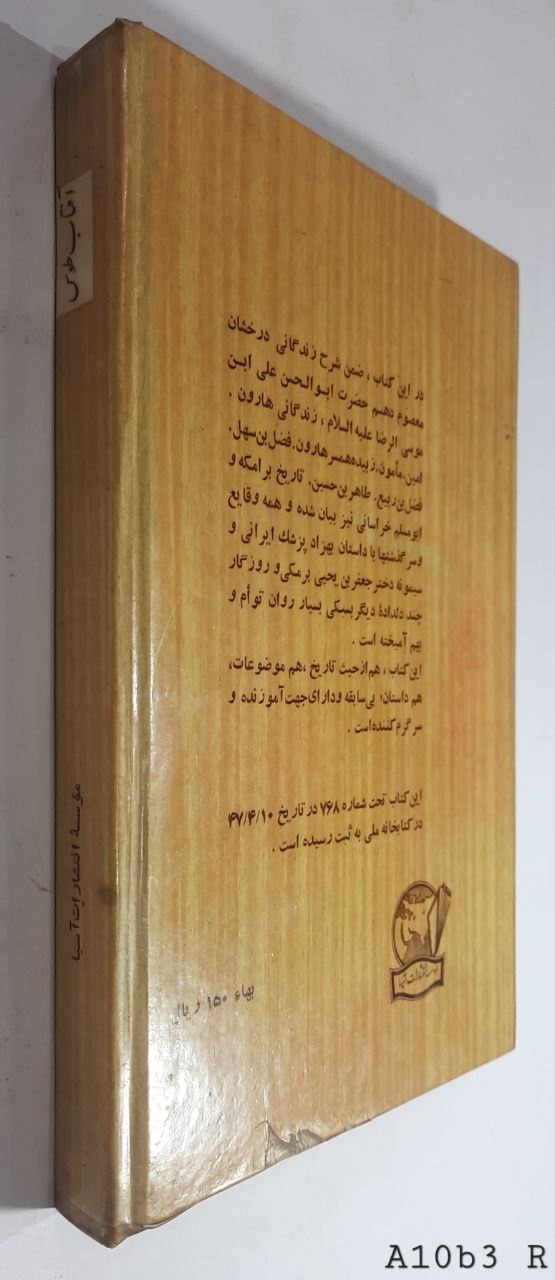 آفتاب طوس
مؤسسهٔ انتشارات آسیا
در این کتاب ، ضمن شرح زندگانی درخشان
معصوم دهم حضرت ابوالحسن علی ابن
موسی الرضا علیه السلام ، زندگانی هارون .
امین. مأمون. زبیده همسر هارون. فضل بن سهل.
فضل بن ربیع. طاهر بن حسین. تاریخ برامکه و
ابومسلم خراسانی نیز بیان شده و همه وقایع
وسرگذشتها با داستان بهزاد پزشك ایرانی و
سیمونه دختر جعفر بن یحیی برمکی و روزگار
چند دلدادهٔ دیگر بسبکی بسیار روان توأم و
بهم آمیخته است .
این کتاب ، هم از حیث تاریخ ، هم موضوعات،
هم داستان؛ بی سابقه و دارای جهت آموزنده و
سرگرم کننده است .
این کتاب تحت شماره ۷۶۸ در تاریخ ۴۷/۴/۱۰
در کتابخانه ملی به ثبت رسیده است .
مؤسسه انتشارات آسیا
بهاء ۱۵۰ ریال
A10b3 R